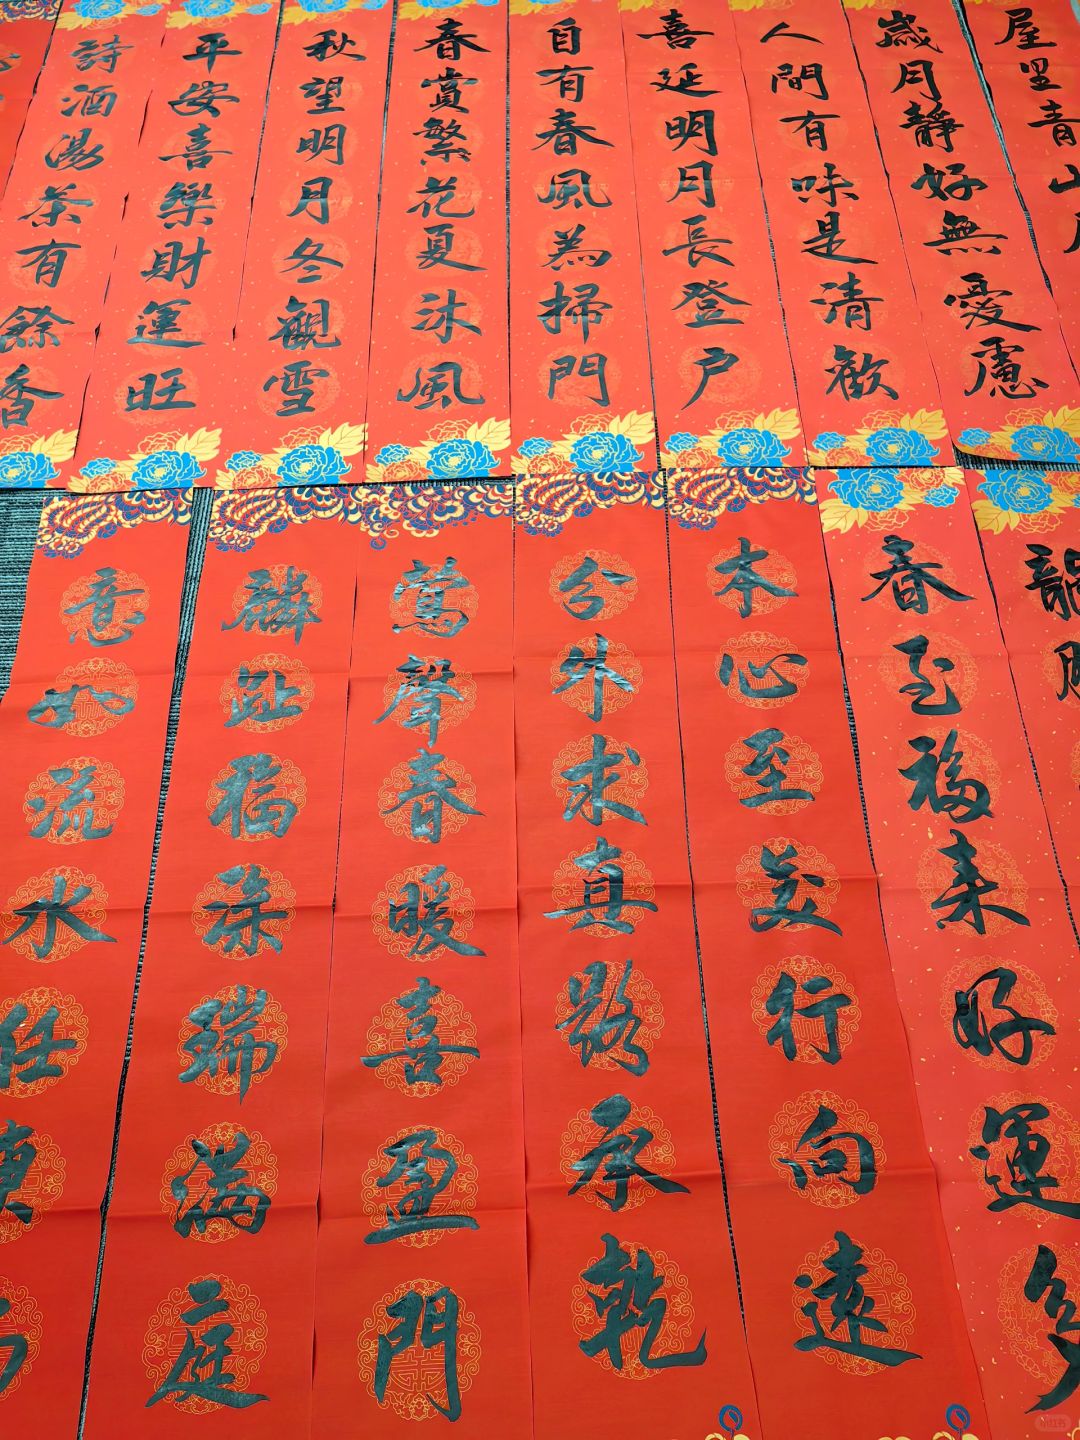 屋里青山
歲月靜好無憂慮
人間有味是清歡
喜延明月長登戶
自有春風為掃門
春賞繁花夏沐風
秋望明月冬觀雪
平安喜樂財運旺
詩酒湯茶有餘香
龍騰
春至福来好運多
本心至美行向遠
分外求真承乾
鶯聲春暖喜盈門
麟趾福深瑞滿庭
意如流水任
小红书